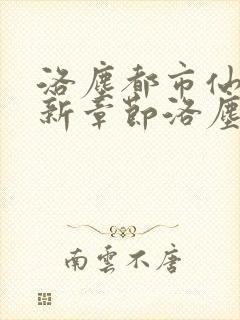 洛塵都市仙
新章節洛塵
南雲不唐